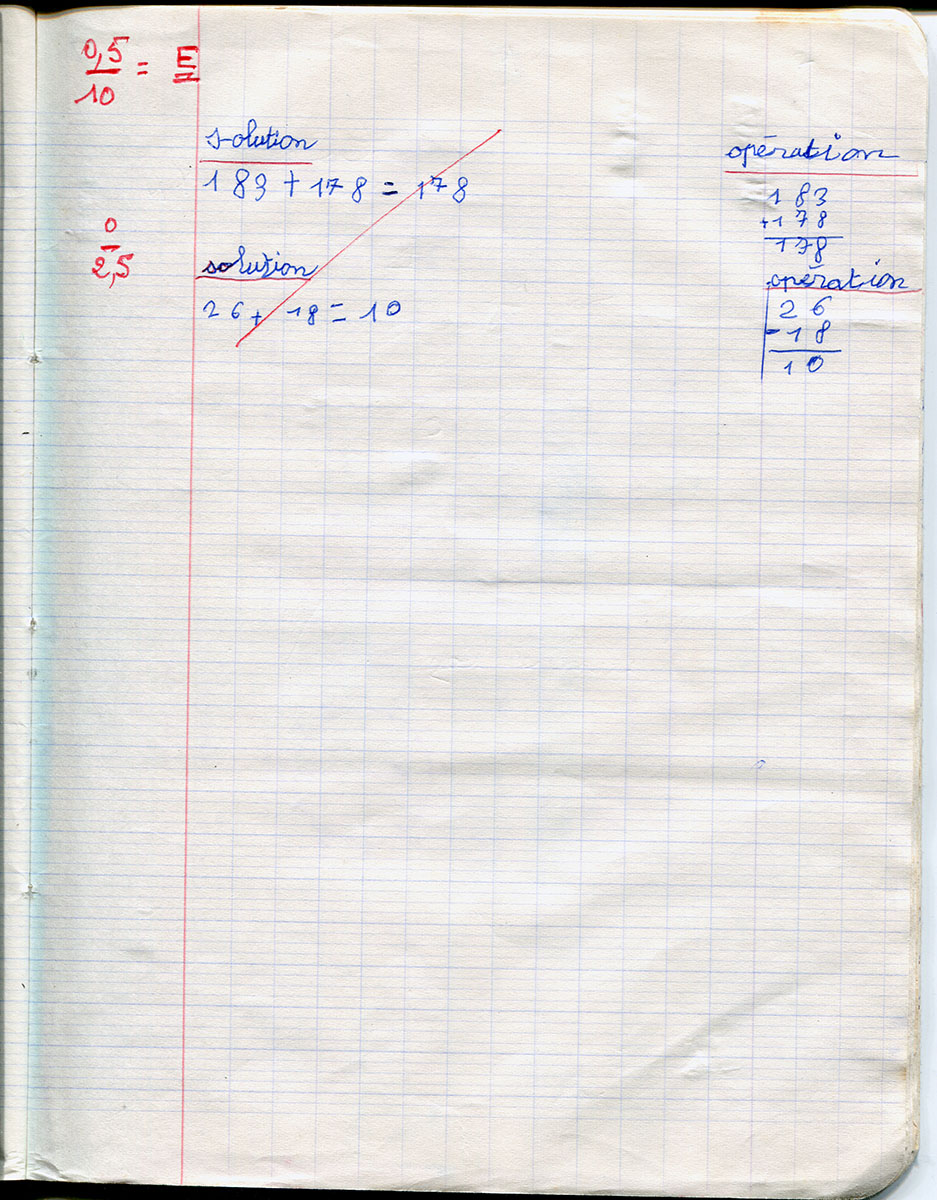 0,5/10 = E
solution
183 + 178 = 178
0/2,5
solution
26 + 18 = 10
opération
183
+178
178
opération
26
-18
10